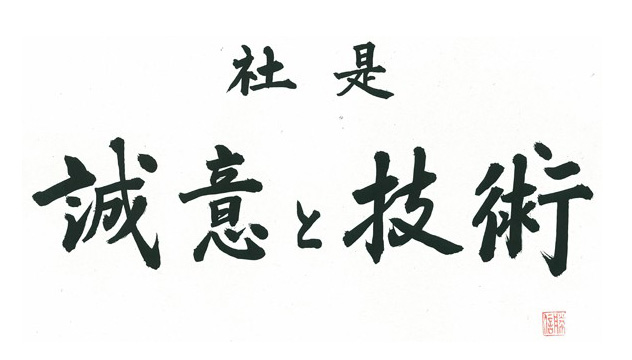 社是
誠意と技術